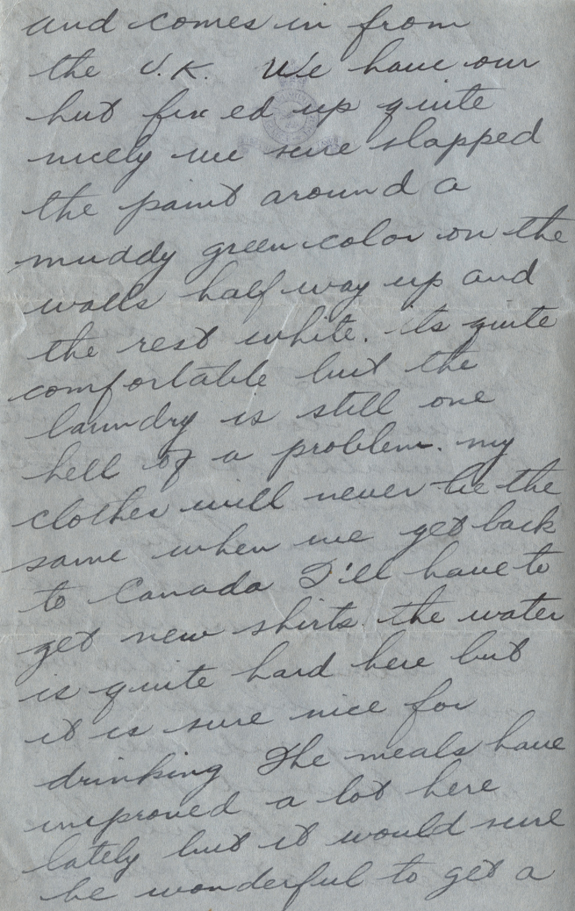 and comes in from
the U.K. We have our
hut fixed up quite
nicely we sure slapped
the paint around a
muddy green color on the
walls half way up and
the rest white. its quite
comfortable but the
laundry is still one
hell of a problem. my
clothes will never be the
same when we get back
to Canada I'll have to
get new shirts. the water
is quite hard here but
it is sure nice for
drinking The meals have
improved a lot here
lately but it would sure
be wonderful to get a